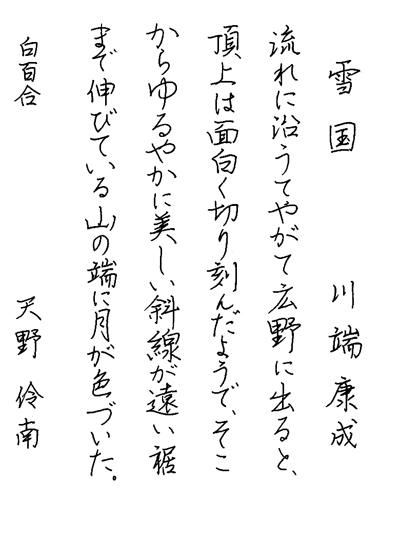 雪国 川端康成
流れに沿うてやがて広野に出ると、
頂上は面白く切り刻んだようで、そこ
からゆるやかに美しい斜線が遠い裾
まで伸びている山の端に月が色づいた。
白百合 天野伶南